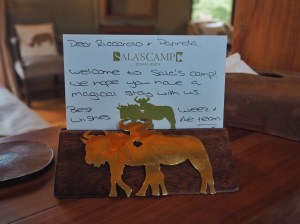 Dear Riccardo + Daniela,
SALA'S CAMP
Welcome to Sala's camp!
We hope you have a
magical stay with us.
Best
wishes
& team